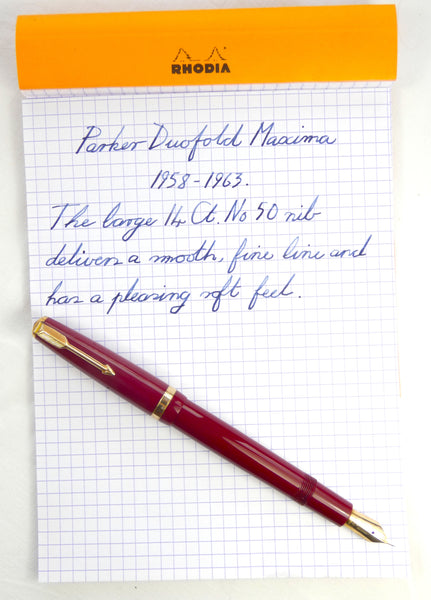 RHODIA
Parker Duofold Maxima
1958-1963.
The large 14 Ct. No 50 nib
delivers a smooth, fine line and
has a pleasing soft feel.